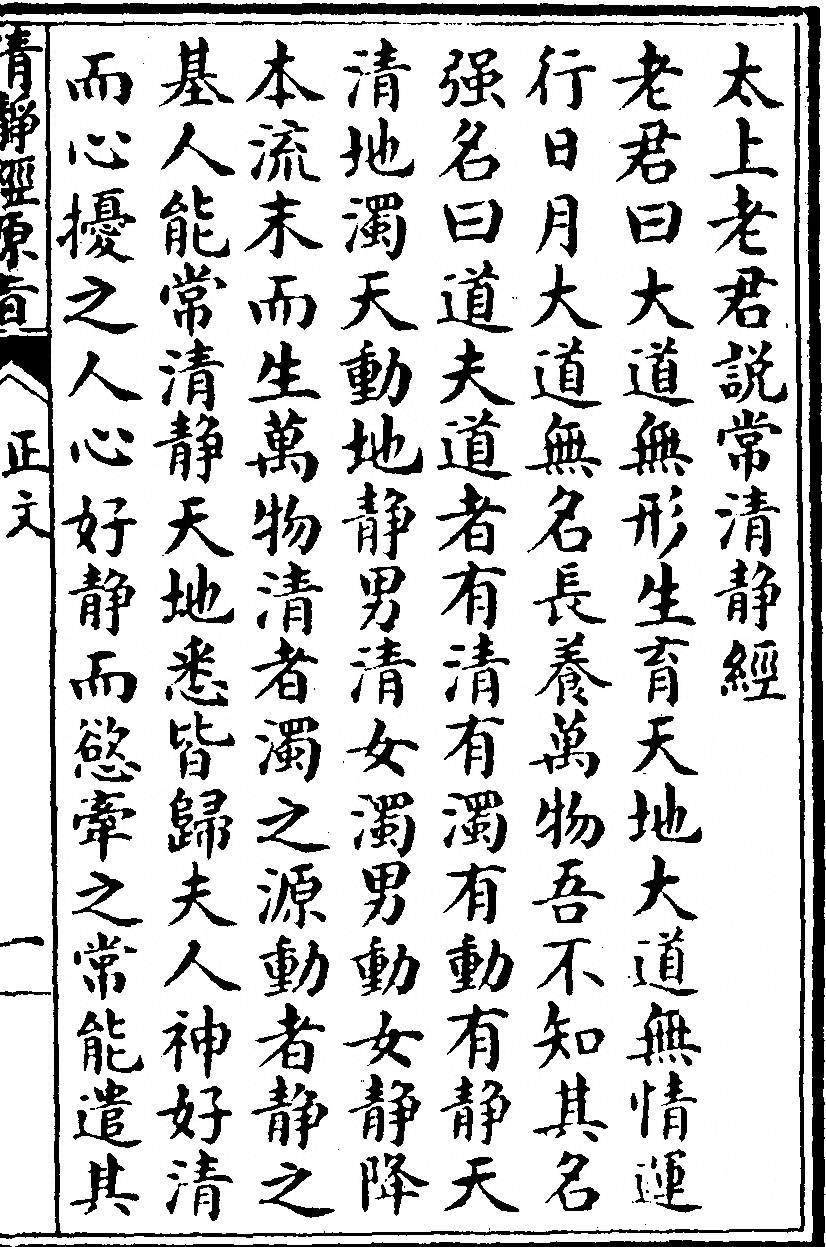 太上老君説常清静經
老君曰大道無形生育天地大道無情運
行日月大道無名長養萬物吾不知其名
强名曰道夫道者有清有濁有動有静天
清地濁天動地静男清女濁男動女静降
本流末而生萬物清者濁之源動者静之
基人能常清静天地悉皆歸夫人神好清
而心擾之人心好静而慾牽之常能遣其
清静經原旨
正文
一